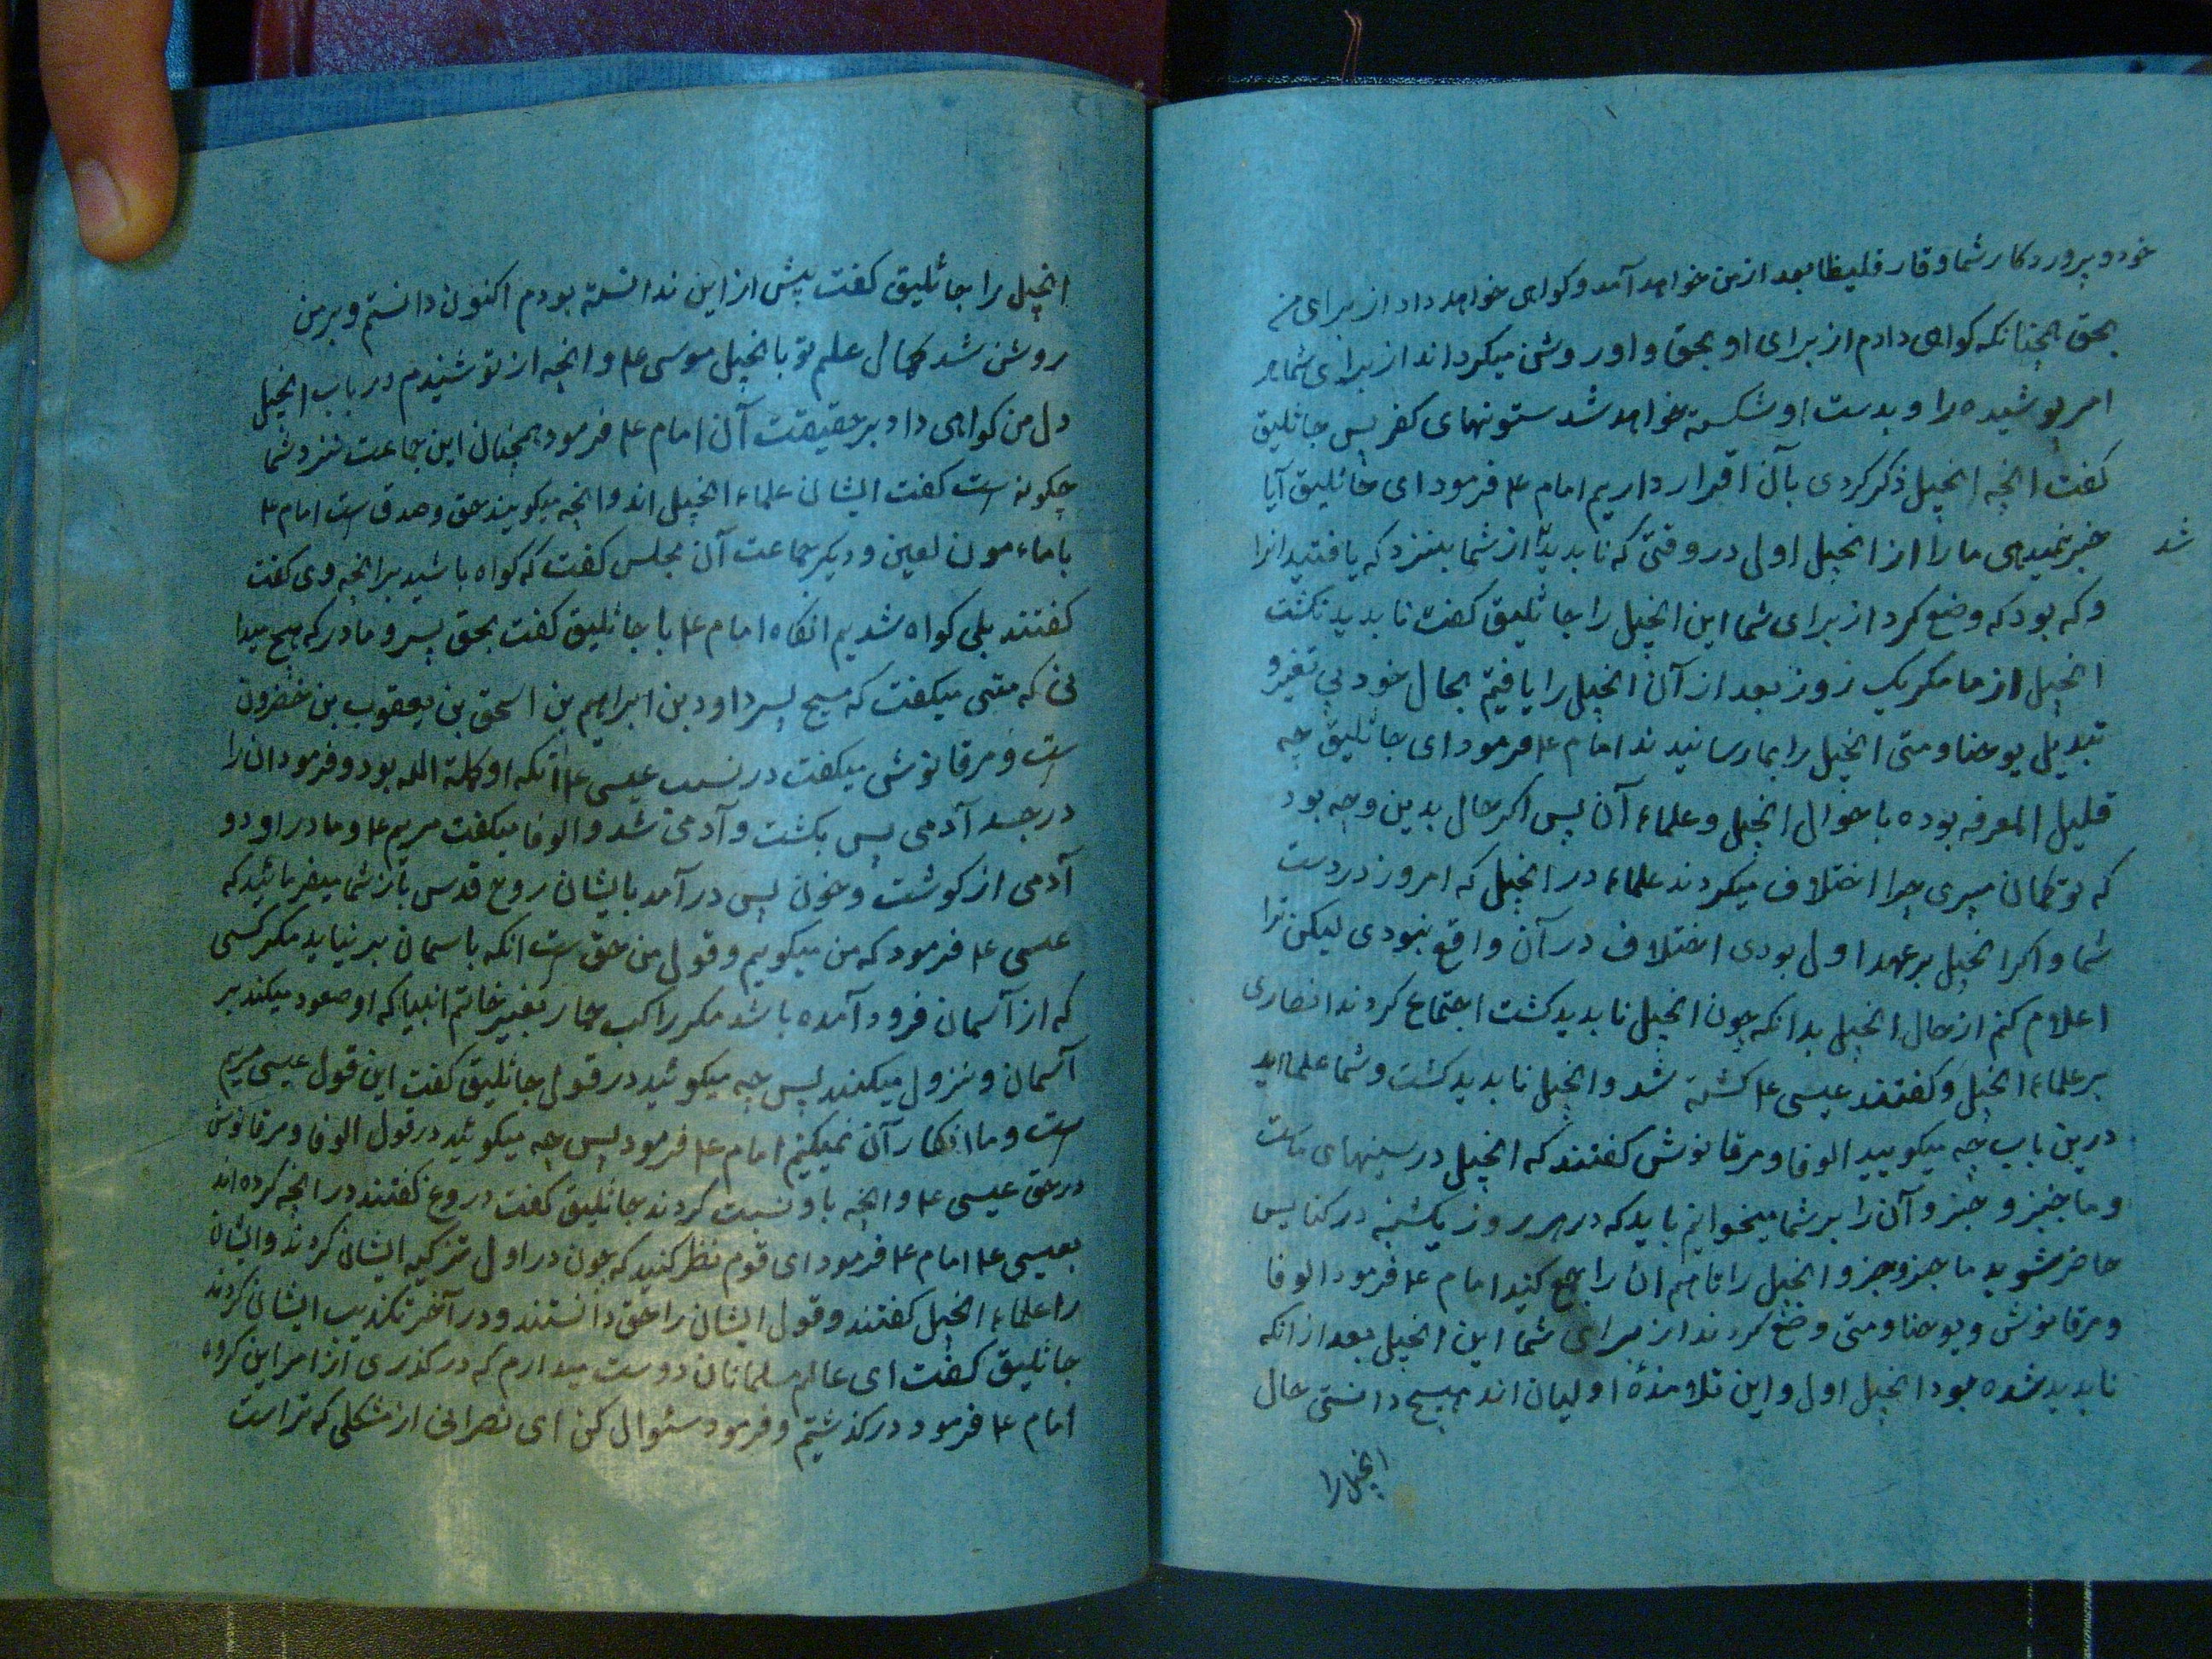 خود و پروردکار شما و قار قلیطا بعد از من خواهد آمد و کواهی خواهد داد از برای من
بحق همچنانکه کواهی دادم از برای او بحق و او روشن میکرداند از برای شما هر
امر پوشیده را و بدست او شکسته خواهد شد ستونهای کفر پس جاثلیق
کفت انچه انجیل ذکر کردی بآن اقرار داریم امام ع فرمود ای جاثلیق آیا
خبر نمیدهی ما را از انجیل اولی در وقتی که نابدید از شما بنزد که یافتید انرا
شد
و که بود که وضع کرد از برای شما این انجیل را جاثلیق کفت نابدید نکشت
انجیل از ما مکر یک روز بعد از آن انجیل را یافتیم بحال خود بی تغیر و
تبدیل یوحنا و متی انجیل را بما رسانیدند امام ع فرمود ای جاثلیق چه
قلیل المعرفه بوده باحوال انجیل و علماء آن پس اکر حال بدین وجه بود
که تو کمان میبری چرا اختلاف میکردند علماء در انجیل که امروز در دست
شما و اکر انجیل بر عهد اول بودی اختلاف در آن واقع نبودی لیکن ترا
اعلام کنم از حال انجیل بدانکه چون انجیل نابدید کشت اجتماع کردند انصاری
بر علماء انجیل و کفتند عیسی ع کشته شد و انجیل نابدید کشت و شما علمااید
درین باب چه میکویید الوفا و مرقانوش کفتند که انجیل در سینهای ماست
و ما جنز و جنز و آن را بر شما میخوانیم باید که در هر روز یکشنبه در کنایس
حاضر شوید ما جزو جزو انجیل را تا هم ان را جمع کنید امام ع فرمود الوفا
و مرقانوش و یوحنا و متی وضع کردند از برای شما این انجیل بعد از انکه
نابدید شده بود انجیل اول و این تلامذهٔ اولیان اند هیچ دانستی حال
انجیل را
انجیل را جاثلیق کفت پیش از این ندانسته بودم اکنون دانستم و بر من
روشن شد کمال علم تو با انجیل موسی ع و انچه از تو شنیدم در باب انجیل
دل من کواهی داد بر حقیقت آن امام ع فرمود همچنان این جماعت نزد شما
چکونه است کفت ایشان علماء انجیل اند و انچه میکویند حق و صدق است امام ع
با ماءمون لعین و دیکر جماعت آن مجلس کفت که کواه باشید بر انچه وی کفت
کفتند بلی کواه شدیم انکاه امام ع با جاثلیق کفت بحق پسر و مادر که هیچ میدا
نی که متی میکفت که مسیح پسر داود بن ابراهیم بن اسحق بن یعقوب بن خضرون
است و مرقانوش میکفت در نسب عیسی ع انکه او کلمة الله بود و فرمود ان را
در جسد آدمی پس بکشت و آدمی شد و الوفا میکفت مریم ع و مادر او دو
آدمی از کوشت و خون پس در آمد بایشان روح قدس باز شما میفرمائید که
عسی ع فرمود که من میکویم و قول من حق است انکه باسمان بر نیاید مکر کسی
که از آسمان فرود آمده باشد مکر راکب حمار بغیر خاتم انبیا که او صعود میکند بر
آسمان و نزول میکنند پس چه میکوئید در قول جاثلیق کفت این قول عیسی مریم
است و ما انکار آن نمیکنیم امام ع فرمود پس چه میکوئید در قول الوفا و مرقانوش
در حق عیسی ع و انچه باو نسبت کردند جاثلیق کفت دروغ کفتند در انچه کرده اند
بعیسی ع امام ع فرمود ای قوم نظر کنید که چون در اول تزکیه ایشان کردند و ایشان
را علماء انجیل کفتند و قول ایشان را حق دانستند و در آخر تکذیب ایشان کردند
جاثلیق کفت ای عالم مسلمانان دوست میدارم که در کذری از امر این کروه
امام ع فرمود در کذشتیم و فرمود سئوال کن ای نصرانی از مشکلی که تراست